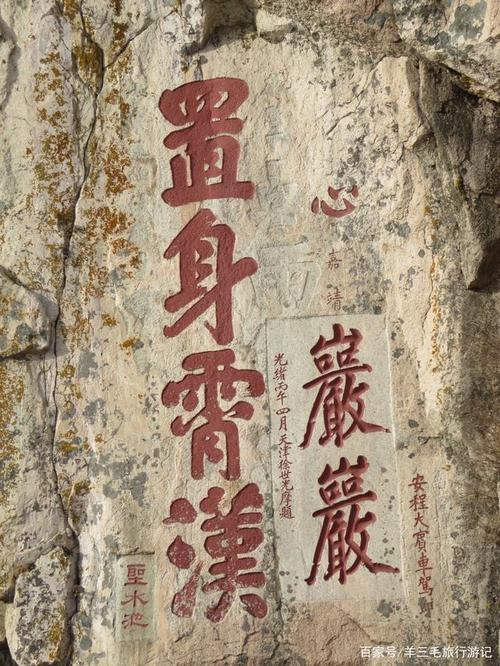 置身霄漢
心
嘉靖
巖巖
光緒丙午四月天津徐世光摩題
聖水池
百家号/羊三毛旅行游记